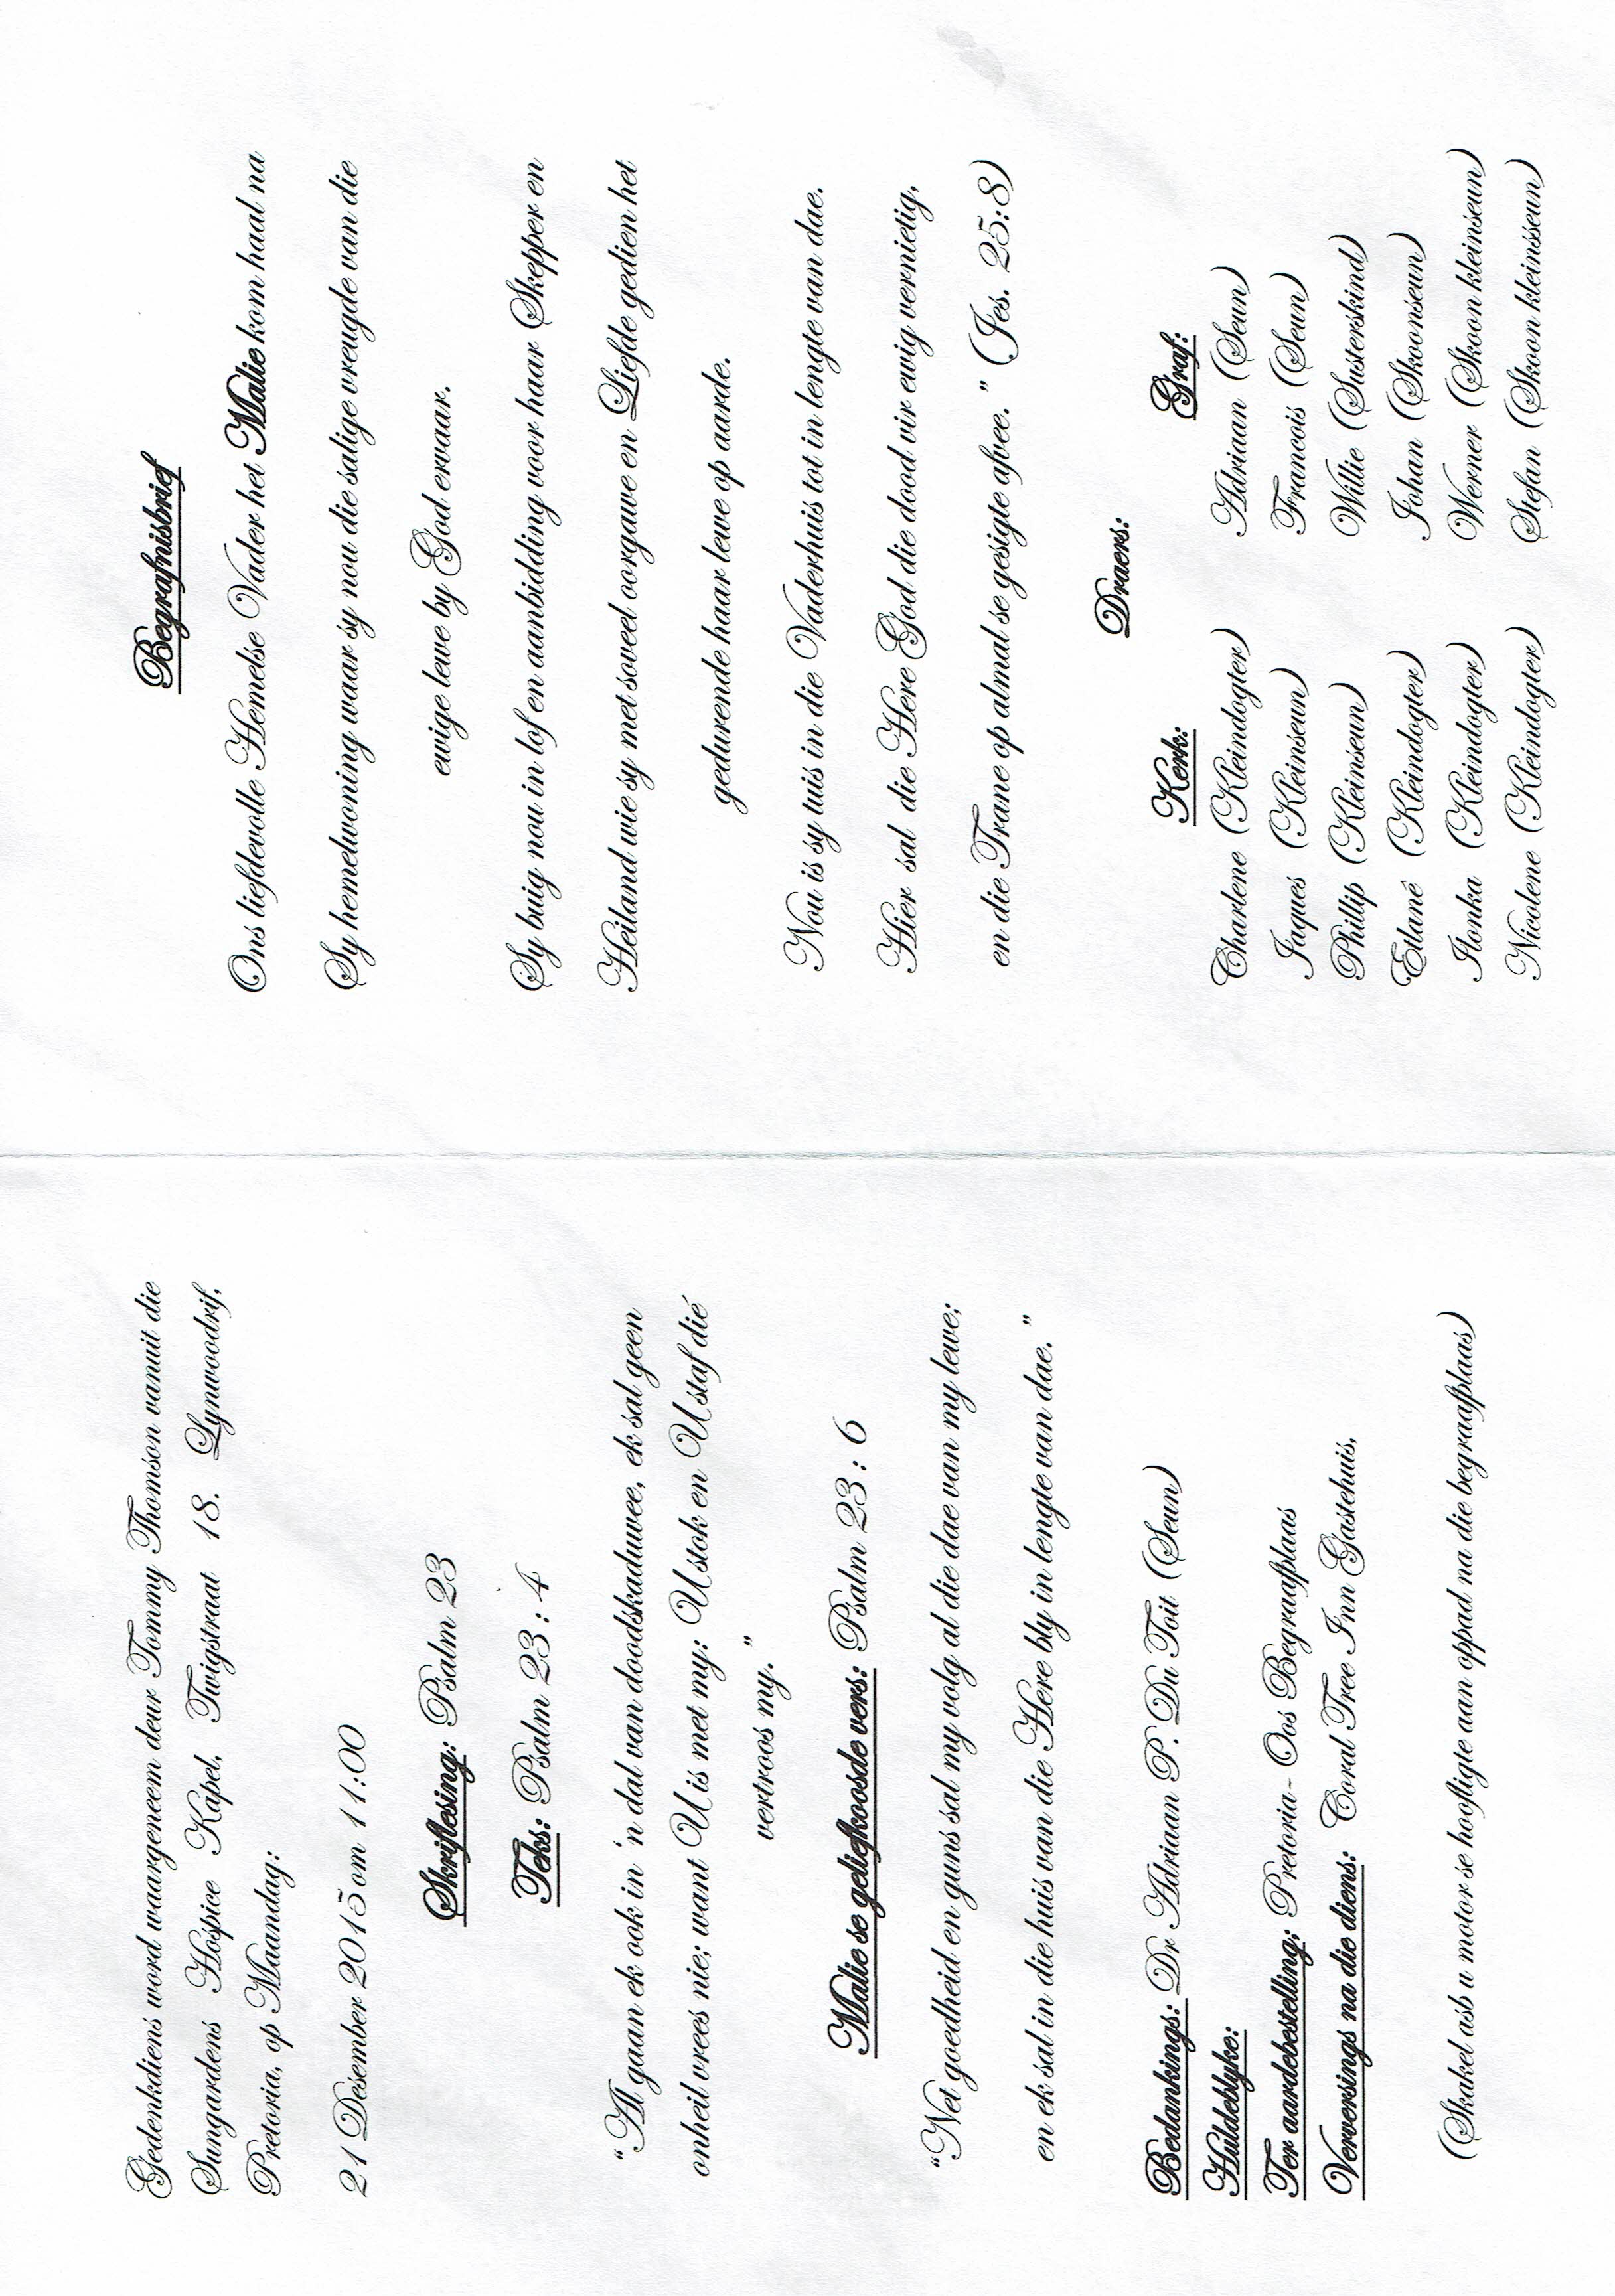 Gedenkdiens word waargeneem deur Tommy Thomson vanuit die
Sungardens Hospice Kapel, Twigstraat 18. Lynwoodrif,
Pretoria, op Maandag:
21 Desember 2015 om 11:00
Skriflesing: Psalm 23
Teks: Psalm 23 : 4
“Al gaan ek ook in ’n dal van doodskaduwee, ek sal geen
onheil vrees nie; want U is met my: U stok en U staf dié
vertroos my.”
Malie se geliefkoosde vers: Psalm 23 : 6
“Net goedheid en guns sal my volg al die dae van my lewe;
en ek sal in die huis van die Here bly in lengte van dae.”
Bedankings: Dr Adriaan P. Du Toit (Seun)
Huldeblyke:
Ter aardebestelling; Pretoria- Oos Begraafplaas
Verversings na die diens: Coral Tree Inn Gastehuis,
(Skakel asb u motor se hoofligte aan oppad na die begraafplaas)
Begrafnisbrief
Ons liefdevolle Hemelse Vader het Malie kom haal na
Sy hemelwoning waar sy nou die salige vreugde van die
ewige lewe by God ervaar.
Sy buig nou in lof en aanbidding voor haar Skepper en
Heiland wie sy met soveel oorgawe en Liefde gedien het
gedurende haar lewe op aarde.
Nou is sy tuis in die Vaderhuis tot in lengte van dae.
Hier sal die Here God die dood vir ewig vernietig,
en die Trane op almal se gesigte afvee.” (Jes. 25:8)
Draers:
Kerk: Graf:
Charlene (Kleindogter) Adriaan (Seun)
Jaques (Kleinseun) Francois (Seun)
Phillip (Kleinseun) Willie (Susterskind)
Etanê (Kleindogter) Johan (Skoonseun)
Ilonka (Kleindogter) Werner (Skoon kleinseun)
Nicolene (Kleindogter) Stefan (Skoon kleinsseun)